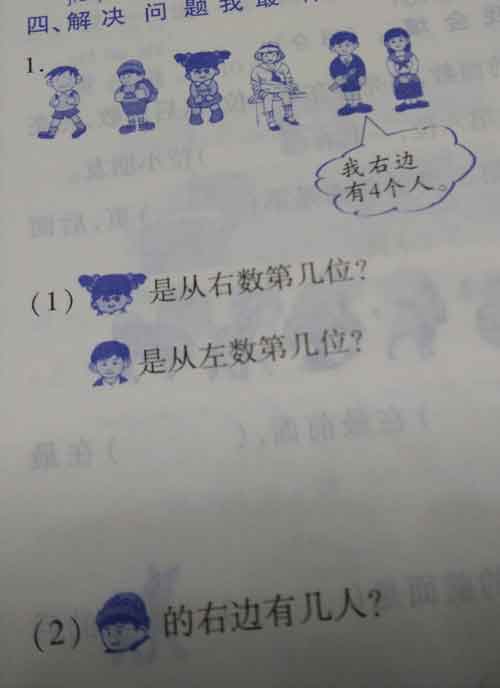 四、解决问题我最
1.
我右边
有4个人。
(1) 是从右数第几位?
是从左数第几位?
(2) 的右边有几人?